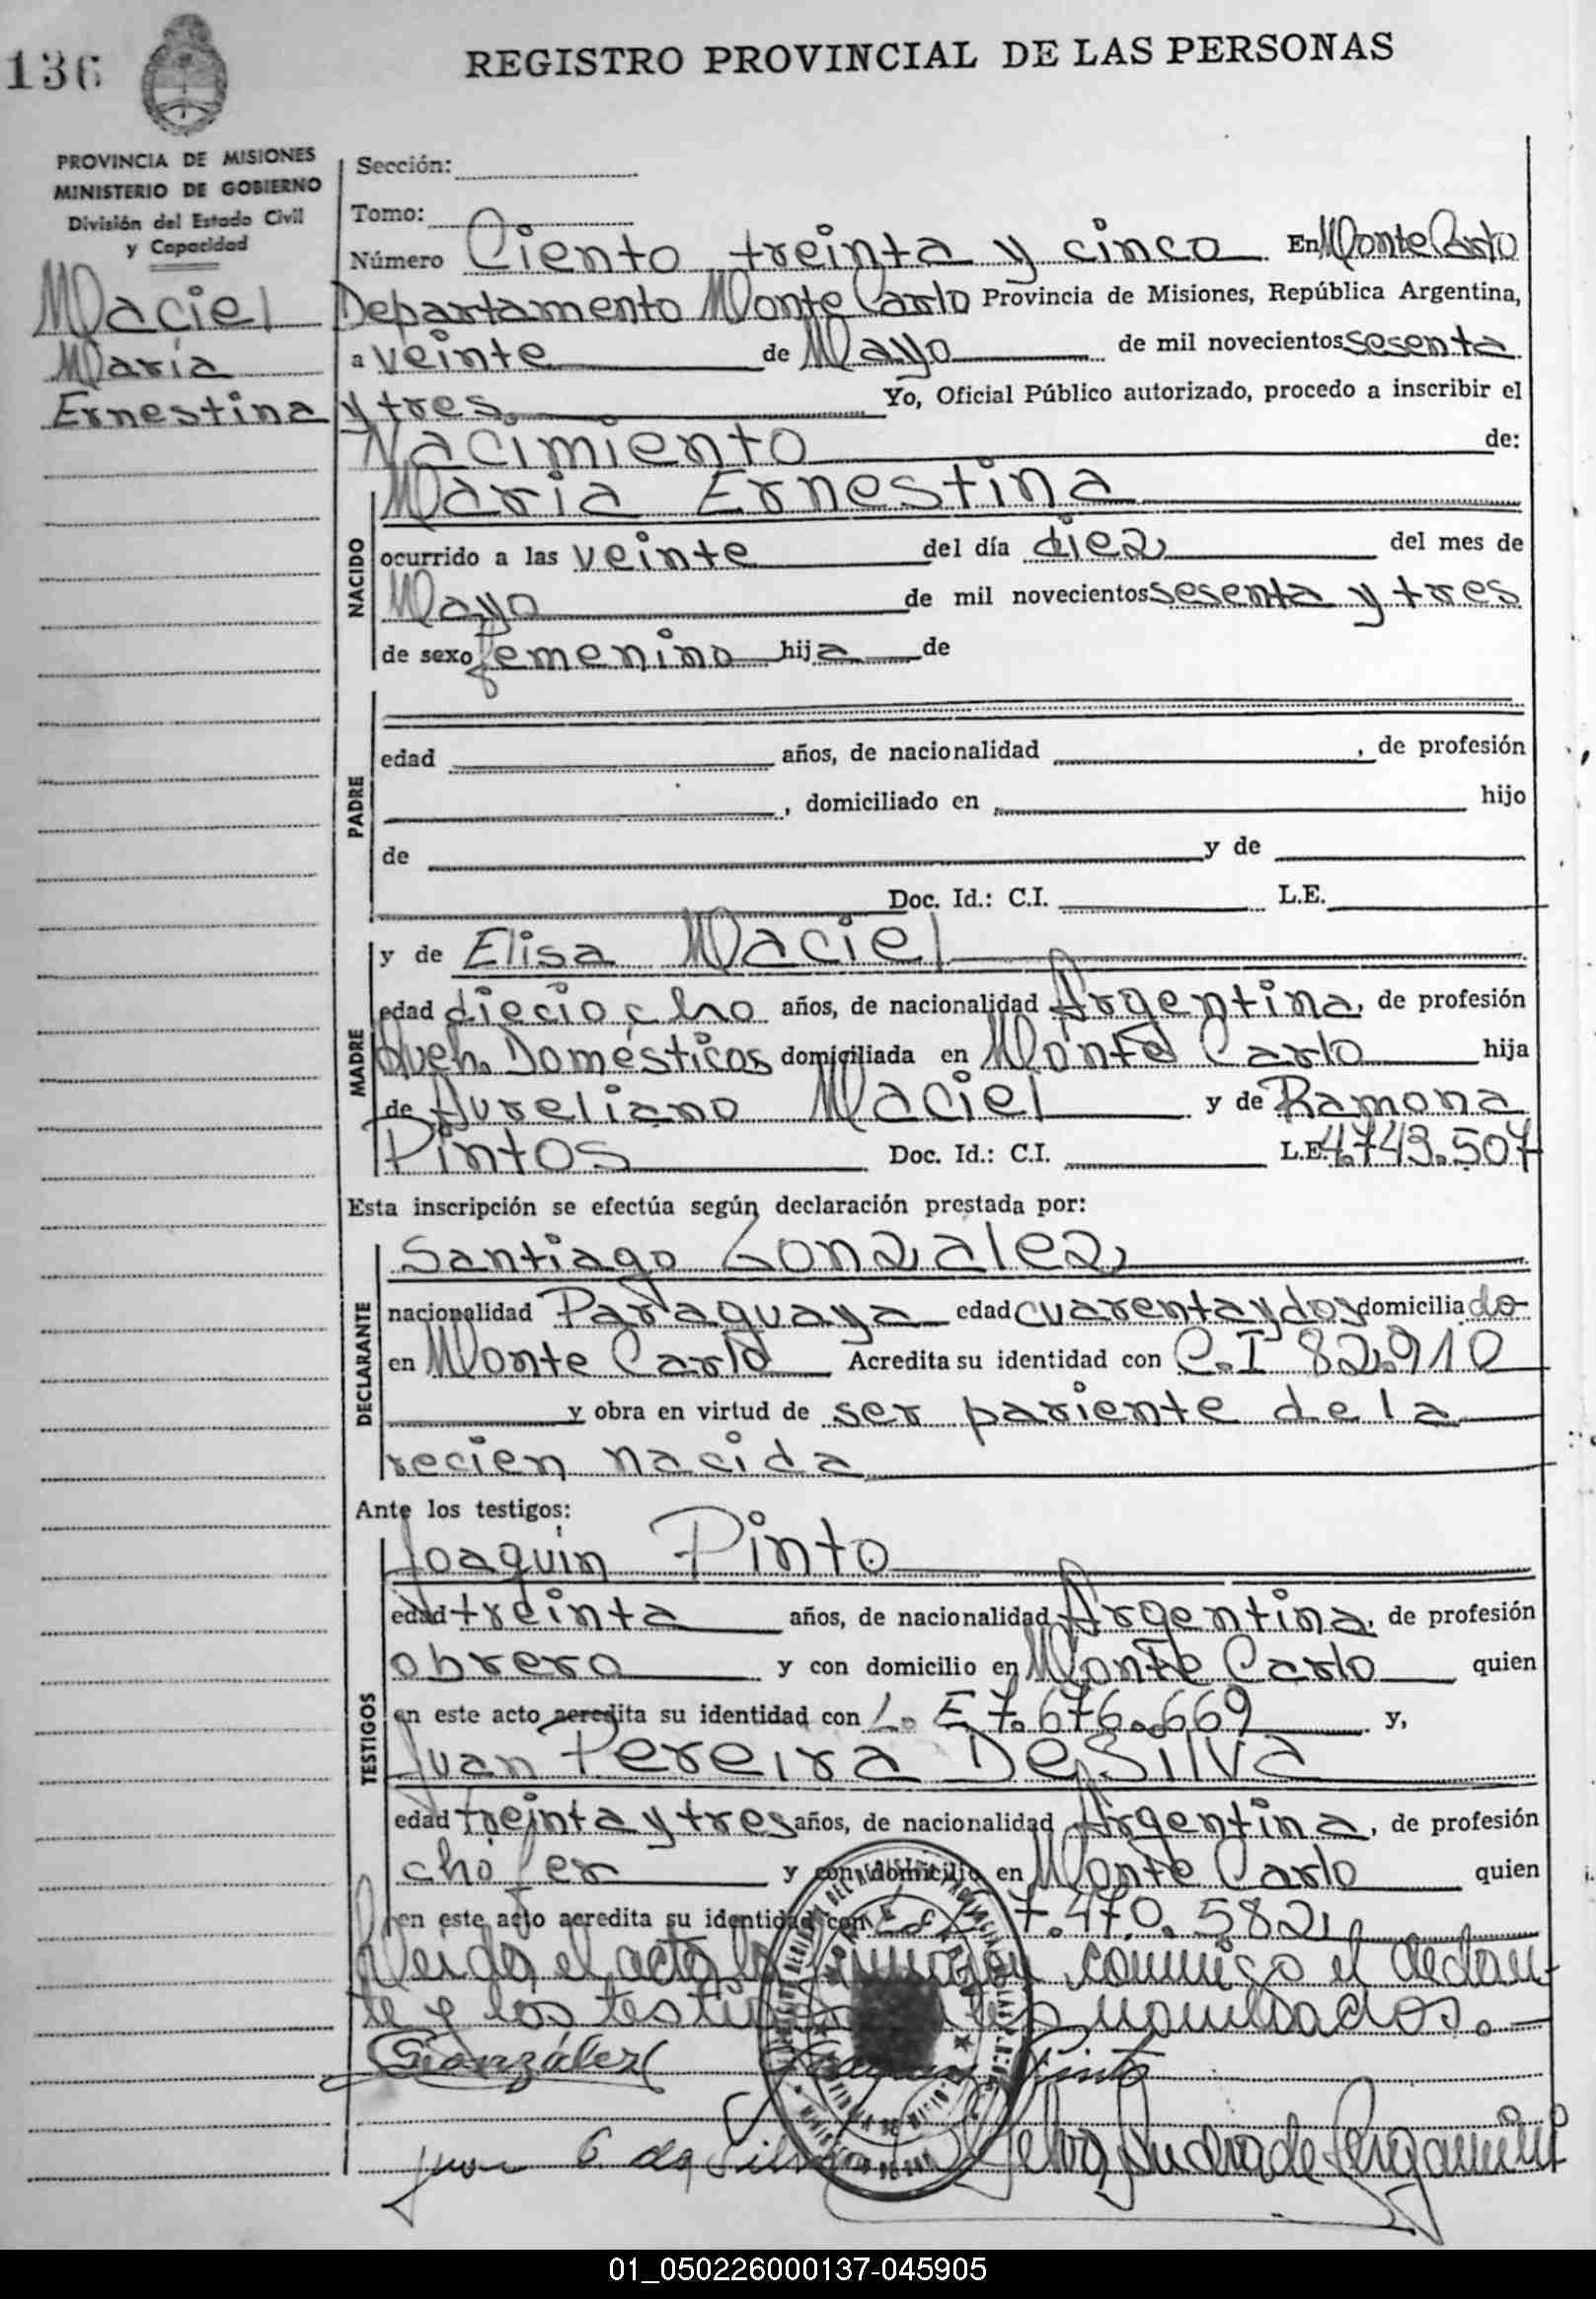 136
REGISTRO PROVINCIAL DE LAS PERSONAS
PROVINCIA DE MISIONES
MINISTERIO DE GOBIERNO
División del Estado Civil
y Capacidad
Maciel
María
Ernestina
Sección:
Tomo:
Número Ciento treinta y cinco En Monte Carlo
Departamento Monte Carlo Provincia de Misiones, República Argentina,
a veinte de Mayo de mil novecientos sesenta
y tres. Yo, Oficial Público autorizado, procedo a inscribir el
Nacimiento de:
NACIDO
Maria Ernestina
ocurrido a las veinte del día diez del mes de
Mayo de mil novecientos sesenta y tres
de sexo femenino hija de
PADRE
edad años, de nacionalidad , de profesión
, domiciliado en hijo
de y de
Doc. Id.: C.I. L.E.
MADRE
y de Elisa Maciel
edad dieciocho años, de nacionalidad Argentina, de profesión
Queh. Domésticos domiciliada en Monte Carlo hija
de Aureliano Maciel y de Ramona
Pintos Doc. Id.: C.I. L.E. 4.743.507
Esta inscripción se efectúa según declaración prestada por:
DECLARANTE
Santiago Gonzalez
nacionalidad Paraguaya edad cuarenta y dos domiciliado
en Monte Carlo Acredita su identidad con C.I 82.910
y obra en virtud de ser pariente de la
recien nacida
Ante los testigos:
TESTIGOS
Joaquin Pinto
edad treinta años, de nacionalidad Argentina, de profesión
obrero y con domicilio en Monte Carlo quien
en este acto acredita su identidad con L. E 7.676.669 y,
Juan Pereira De Silva
edad treinta y tres años, de nacionalidad Argentina, de profesión
chofer y con domicilio en Monte Carlo quien
en este acto acredita su identidad con 7.470.582
Leida el acta la conmigo el declaran-
te y los testigos nombrados.
González Pinto
Juan
01_050226000137-045905